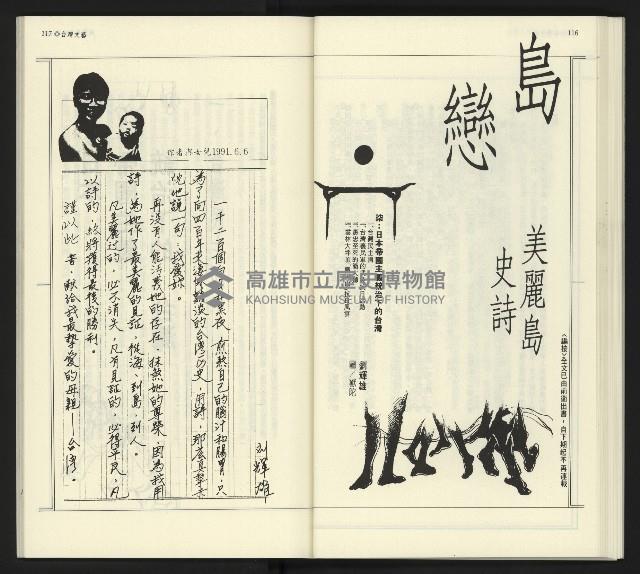 116
島
戀
美麗島
史詩
(編按)全文已由前衛出書,自下期起不再連載
柒:日本帝國主義統治下的台灣
劉輝雄
117◎台灣文藝
作者與女兒1991.6.6
一千二百個
黑夜,煎熬自己的腦汁和腸胃,只
為了向四百年來
的台灣歷史,用詩,那麼真摯
說他說一句:我愛妳。
再沒有人能
她的存在、抹煞她的尊榮,因為我用
詩,為她作了最美麗的見証,從海、到島、到人。
凡美麗過的,必不消失,凡有見証的,必得平反,凡
以詩的,終將獲得最後的勝利。
謹以此書,獻給我最摯愛的母親——台灣。
劉輝雄
高雄市立歷史博物館
KAOHSIUNG MUSEUM OF HISTORY